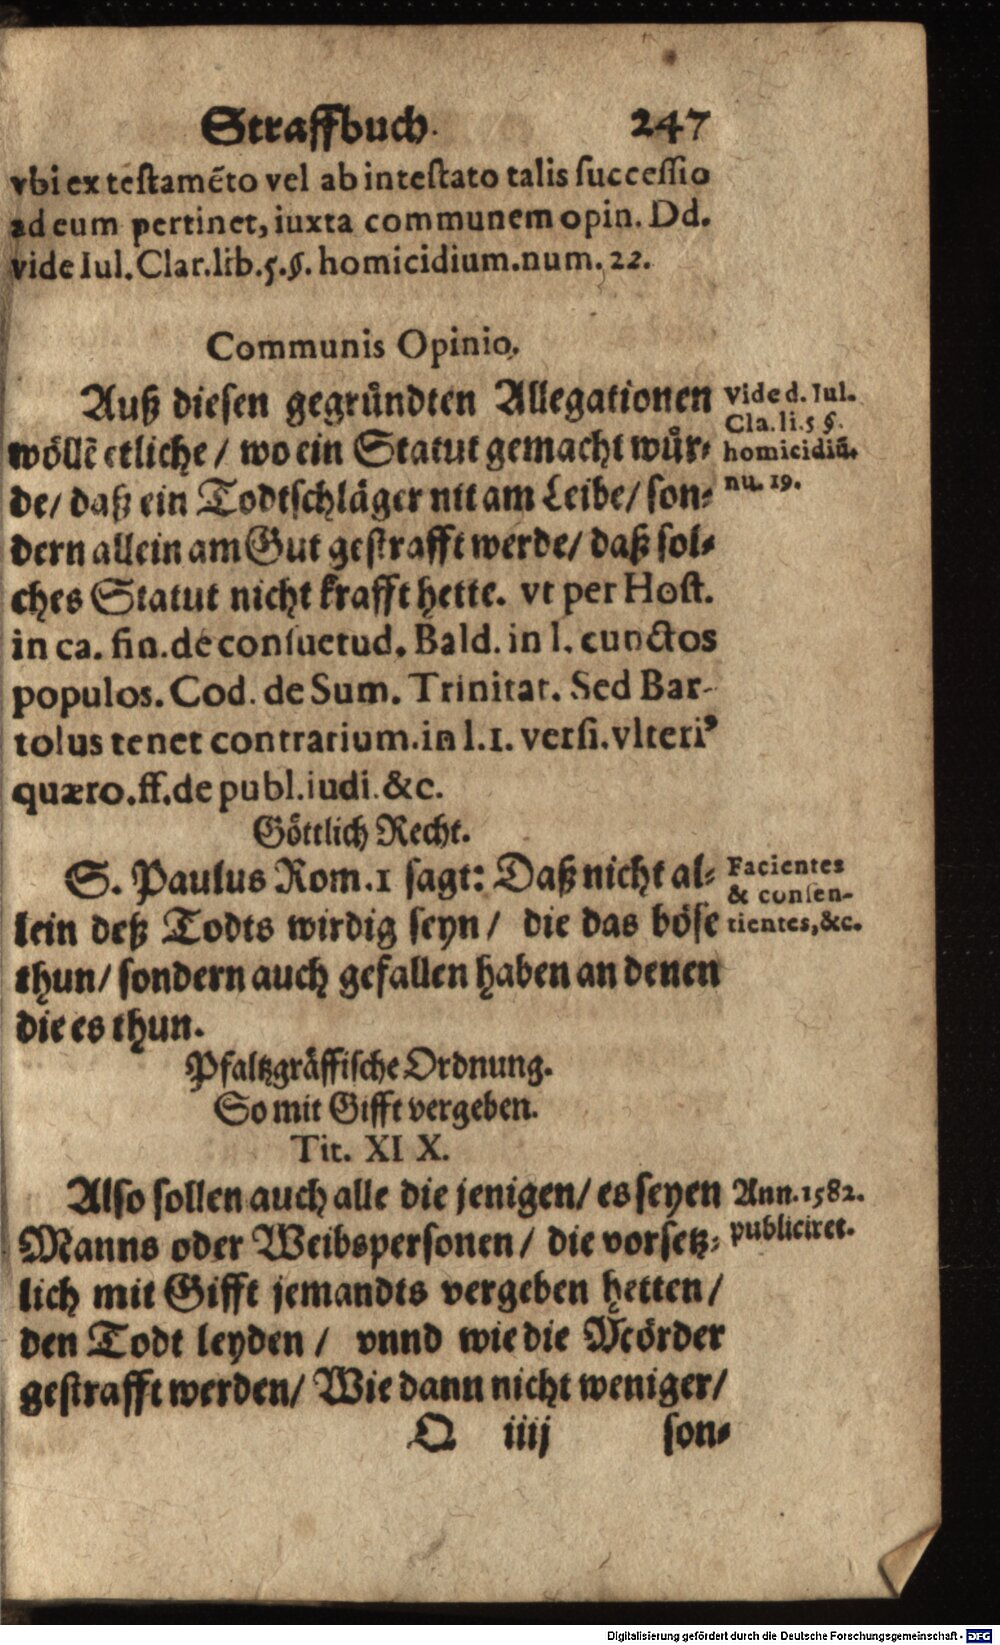 Straffbuch. 247
vbi ex testamēto vel ab intestato talis successio
ad eum pertinet, iuxta communem opin. Dd.
vide Iul. Clar. lib. 5. §. homicidium. num. 22.
Communis Opinio.
Auß diesen gegründten Allegationen
wöllē etliche / wo ein Statut gemacht wür⸗
de / daß ein Todtschläger nit am Leibe / son⸗
dern allein am Gut gestrafft werde / daß sol⸗
ches Statut nicht krafft hette. vt per Host.
in ca. fin. de consuetud. Bald. in l. cunctos
populos. Cod. de Sum. Trinitat. Sed Bar-
tolus tenet contrarium. in l. 1. versi. vlteriꝰ
quæro. ff. de publ. iudi. &c.
Vide d. Iul.
Cla. li. 5 §.
homicidiū.
nu. 19.
Göttlich Recht.
S. Paulus Rom. 1 sagt: Daß nicht al⸗
lein deß Todts wirdig seyn / die das böse
thun / sondern auch gefallen haben an denen
die es thun.
Facientes
& consen-
tientes, &c.
Pfaltzgräffische Ordnung.
So mit Gifft vergeben.
Tit. XI X.
Also sollen auch alle die jenigen / es seyen
Manns oder Weibspersonen / die vorsetz⸗
lich mit Gifft jemandts vergeben hetten /
den Todt leyden / vnnd wie die Mörder
gestrafft werden / Wie dann nicht weniger /
Ann. 1582.
publiciret.
Q iiij son⸗
Digitalisierung gefördert durch die Deutsche Forschungsgemeinschaft - DFG